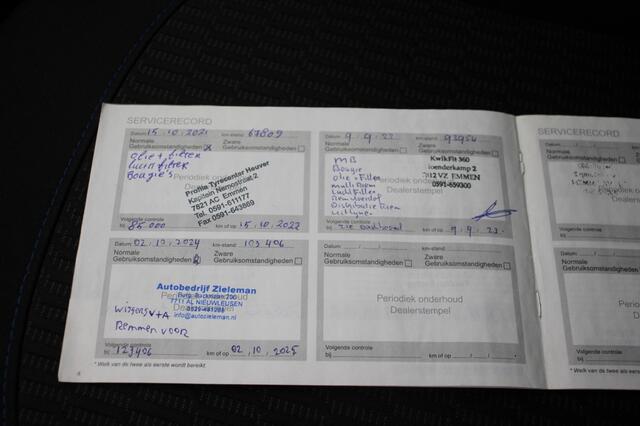 SERVICERECORD
Datum 15.10.2021 km-stand 67809
Normale Gebruiksomstandigheden x Zware Gebruiksomstandigheden
olie + filter
luchtfilter
Bougie's
Periodiek onderhoud
Dealerstempel
Profile Tyrecenter Heuver
Kapitein Nemostraat 2
7821 AC Emmen
Tel. 0591-611177
Fax 0591-643869
Volgende controle
bij 85.000 km of op 15.10.2022
Datum 9.9.22 km-stand 93954
Normale Gebruiksomstandigheden Zware Gebruiksomstandigheden
MB
Bougie
olie + Filter
multi Riem
Luchtfilter
Remvloeistof
Distributie Riem
Periodiek onderhoud
Dealerstempel
KwikFit 360
7812 VZ EMMEN
0591-659300
Volgende controle
bij zie dashboard 9.9.23
Datum 02.10.2024 km-stand 103406
Normale Gebruiksomstandigheden Zware Gebruiksomstandigheden
Autobedrijf Zieleman
7711 AL NIEUWLEUSEN
info@autozieleman.nl
wissers V+A
Remmen voor
Volgende controle
bij 123406 km of op 02.10.2025
Datum km-stand
Normale Gebruiksomstandigheden Zware Gebruiksomstandigheden
Periodiek onderhoud
Dealerstempel
Volgende controle
bij km of op
* Welk van de twee als eerste wordt bereikt.
SERVICERECORD
Datum
Normale
Gebruiksomstandi
Volgende controle
bij
Datum
Normale
Gebruiksomstandi
Volgende controle
bij